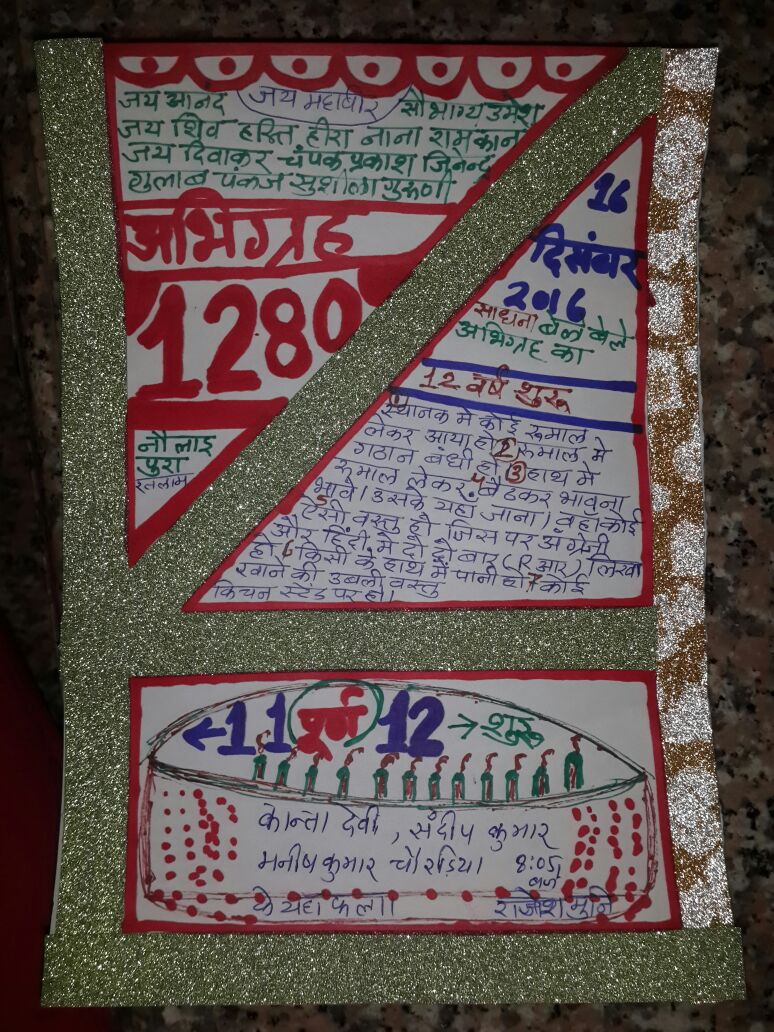 जय आनंद जय महावीर सौभाग्य उमेश
जय शिव हस्ति हीरा नाना राम कान
जय दिवाकर चंपक प्रकाश जिनेन्द्र
गुलाब पंकज सुशीला गुरुणी
अभिग्रह
1280
नौलाई
पुरा
रतलाम
16
दिसंबर
2016
साधना बेले बेले
अभिग्रह का
12 वर्ष शुरू
स्थानक मे कोई रूमाल
लेकर आया हो 2 रूमाल मे
गठान बंधी हो 3 हाथ मे
रूमाल लेकर 4 बैठकर भावना
भावे। उसके यहा जाना) वहा कोई
5 ऐसी वस्तु हो जिस पर अंग्रेजी
और हिंदी मे दो दो बार (R आर) लिखा
हो 6 किसी के हाथ मे पानी हो 7 कोई
खाने की उबली वस्तु
किचन स्टेंड पर हो।
←11 पूर्ण 12 → शुरू
कान्ता देवी, संदीप कुमार
मनीष कुमार चौरडिया 8:05
बजे
के यहा फला। राजेश मुनि